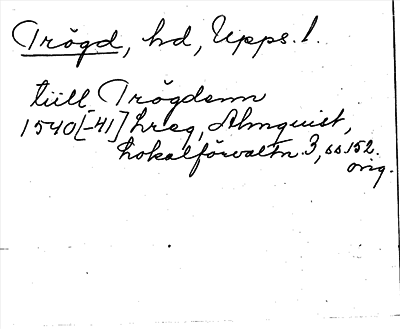 Trögd, hd, Upps. l.
tiill Trögdenn
1540[-41] hreg, Almquist,
Lokalförvaltn. 3, ss. 152.
orig.